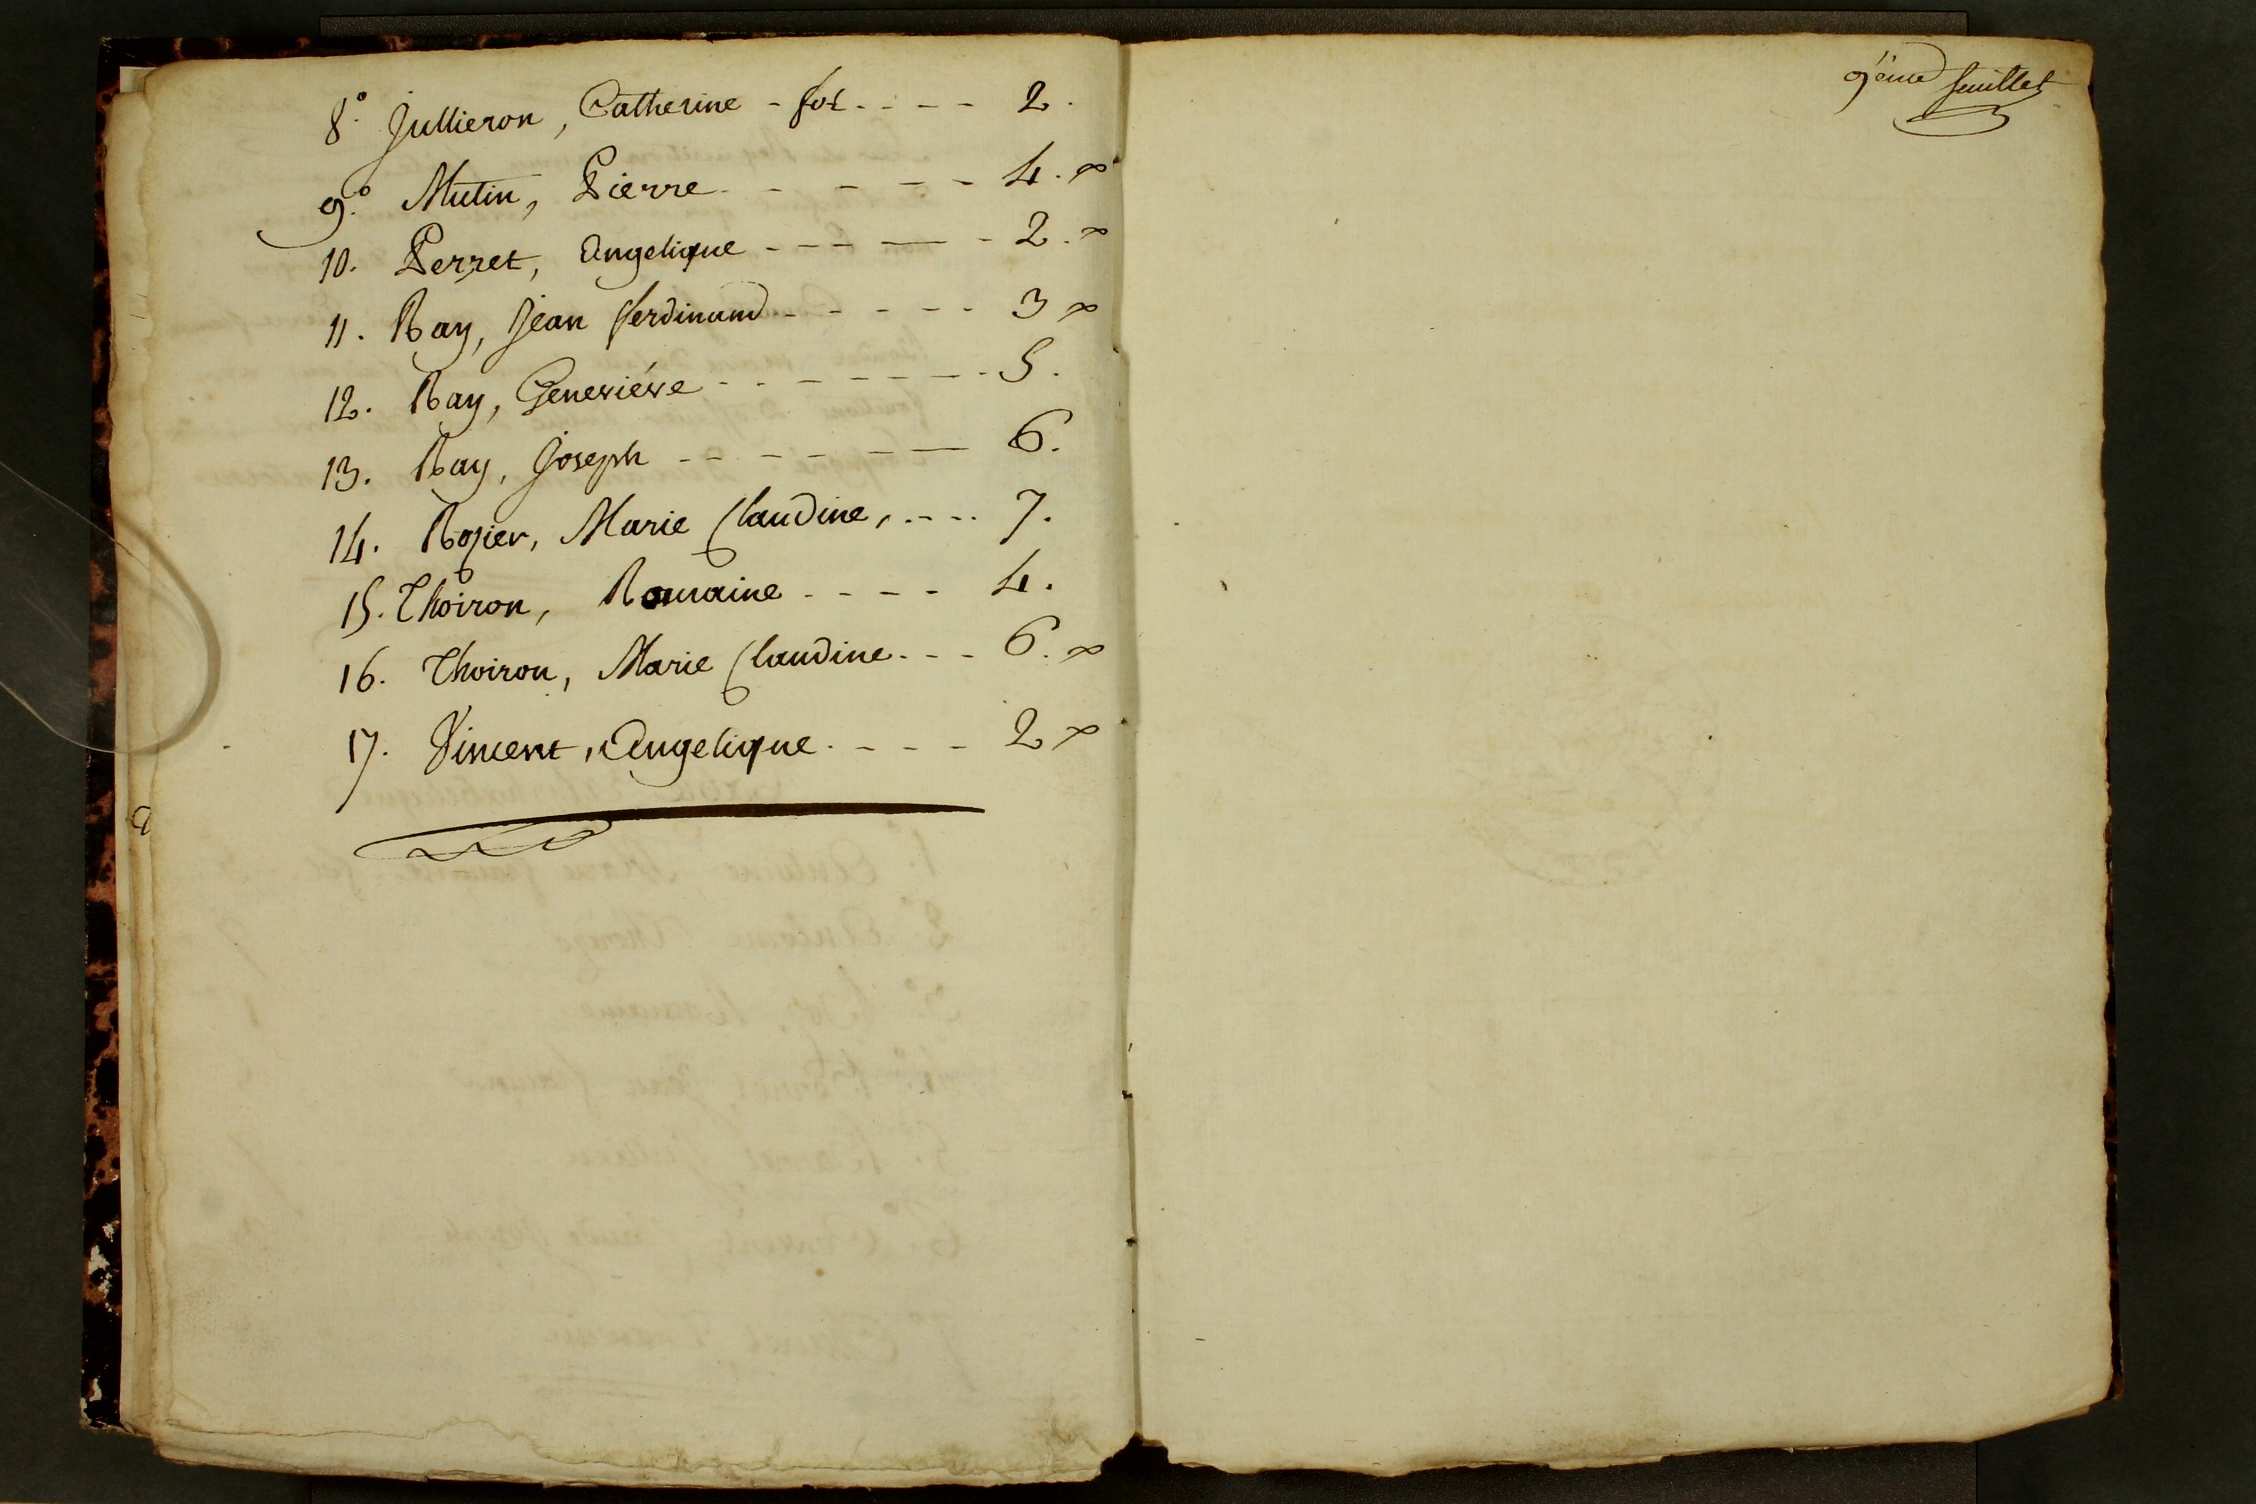 8.° Jullieron, Catherine - fol. - - - - 2.
9.° Mutin, Pierre - - - - - 4.
10. Perret, Angelique - - - - - 2.
11. Ray, Jean ferdinand - - - - - 3
12. Ray, Geneviéve - - - - - - - 5.
13. Ray, Joseph - - - - - - - 6.
14. Rozier, Marie Claudine, - - - - 7.
15. Thoiron, Romaine - - - - 4.
16. Thoiron, Marie Claudine - - - 6.
17. Vincent, Angelique - - - - 2
9ème feuillet